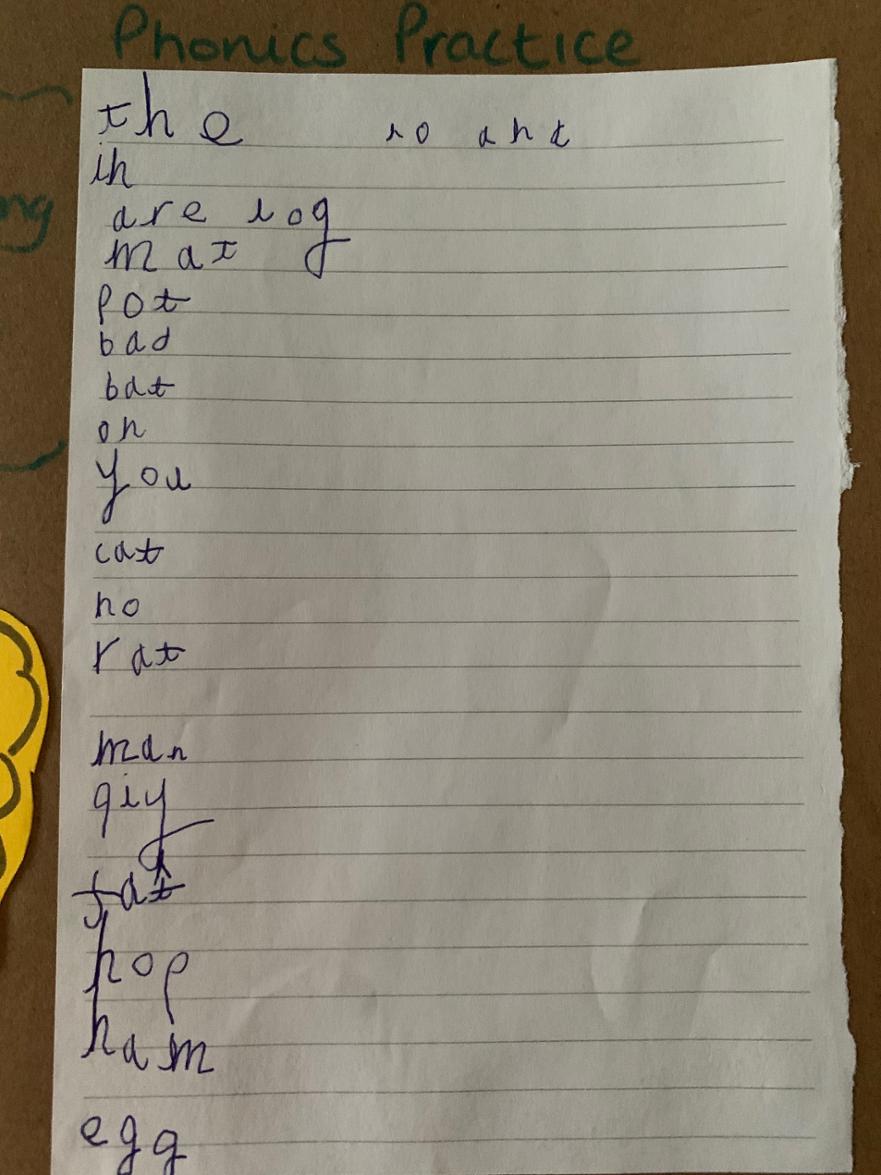 Phonics Practice
ng
the so and
in
are log
mat
pot
bad
bat
on
you
cat
no
rat
man
giy
fat
hop
ham
egg